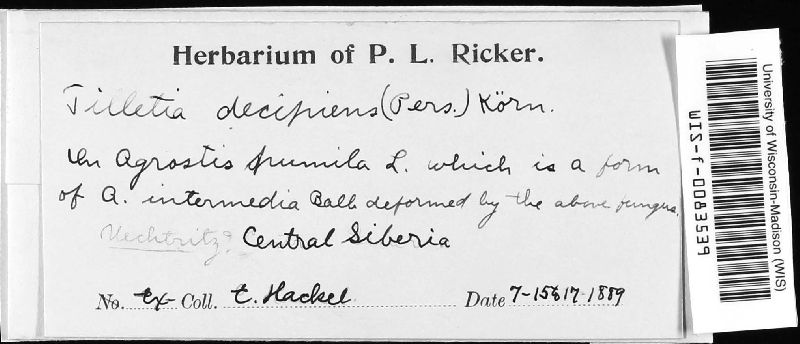 Herbarium of P. L. Ricker.
Tilletia decipiens (Pers.) Körn.
On Agrostis pumila L. which is a form
of A. intermedia Balb deformed by the above fungus.
Uechtritz? Central Siberia
No. Ex Coll. E. Hackel Date 7-15&17-1889
University of Wisconsin-Madison (WIS)
WIS-f-0083539